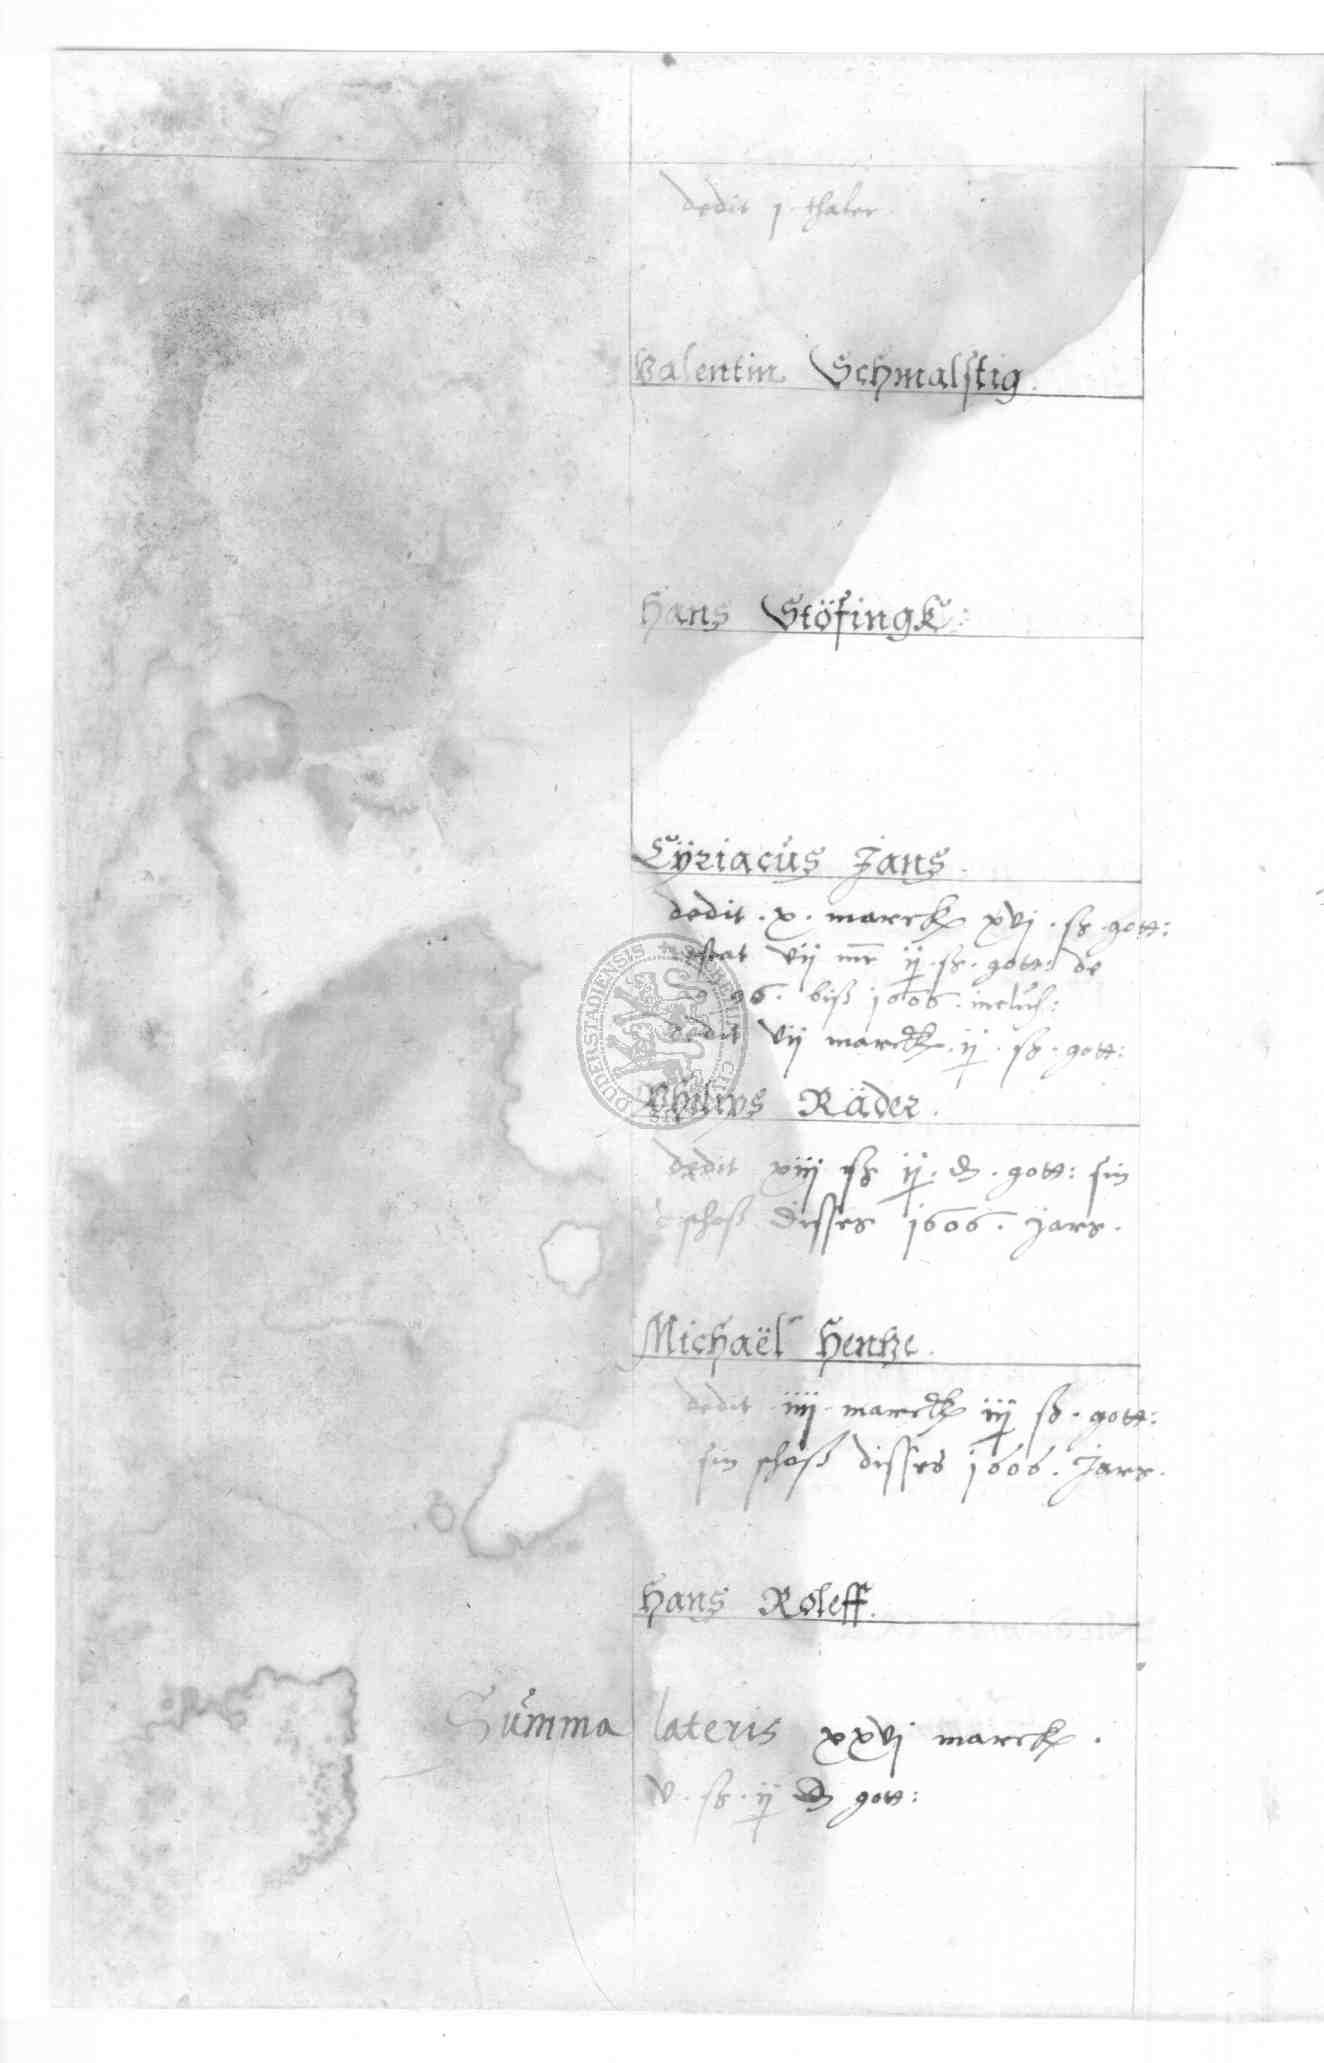 dedit j thaler
Valentin Schmalstig.
Hans Stöfingk:
Cÿriacus Jans.
dedit . x . marck xvj . ß . gott:
restat vij mr ij . ß . gott: de
96 . biß 1606 . inclus:
dedit vij marck . ij . ß . gott:
Philips Räder.
dedit xiij ß ij . d . gott: sin
schoß disses 1606 . jars .
Michaël Hentze.
dedit iiij marck iij ß . gott:
sin schoß disses 1606 . Jars .
Hans Roleff.
Summa lateris xxvj marck .
v . ß . ij d gott:
DUDERSTADIENSIS